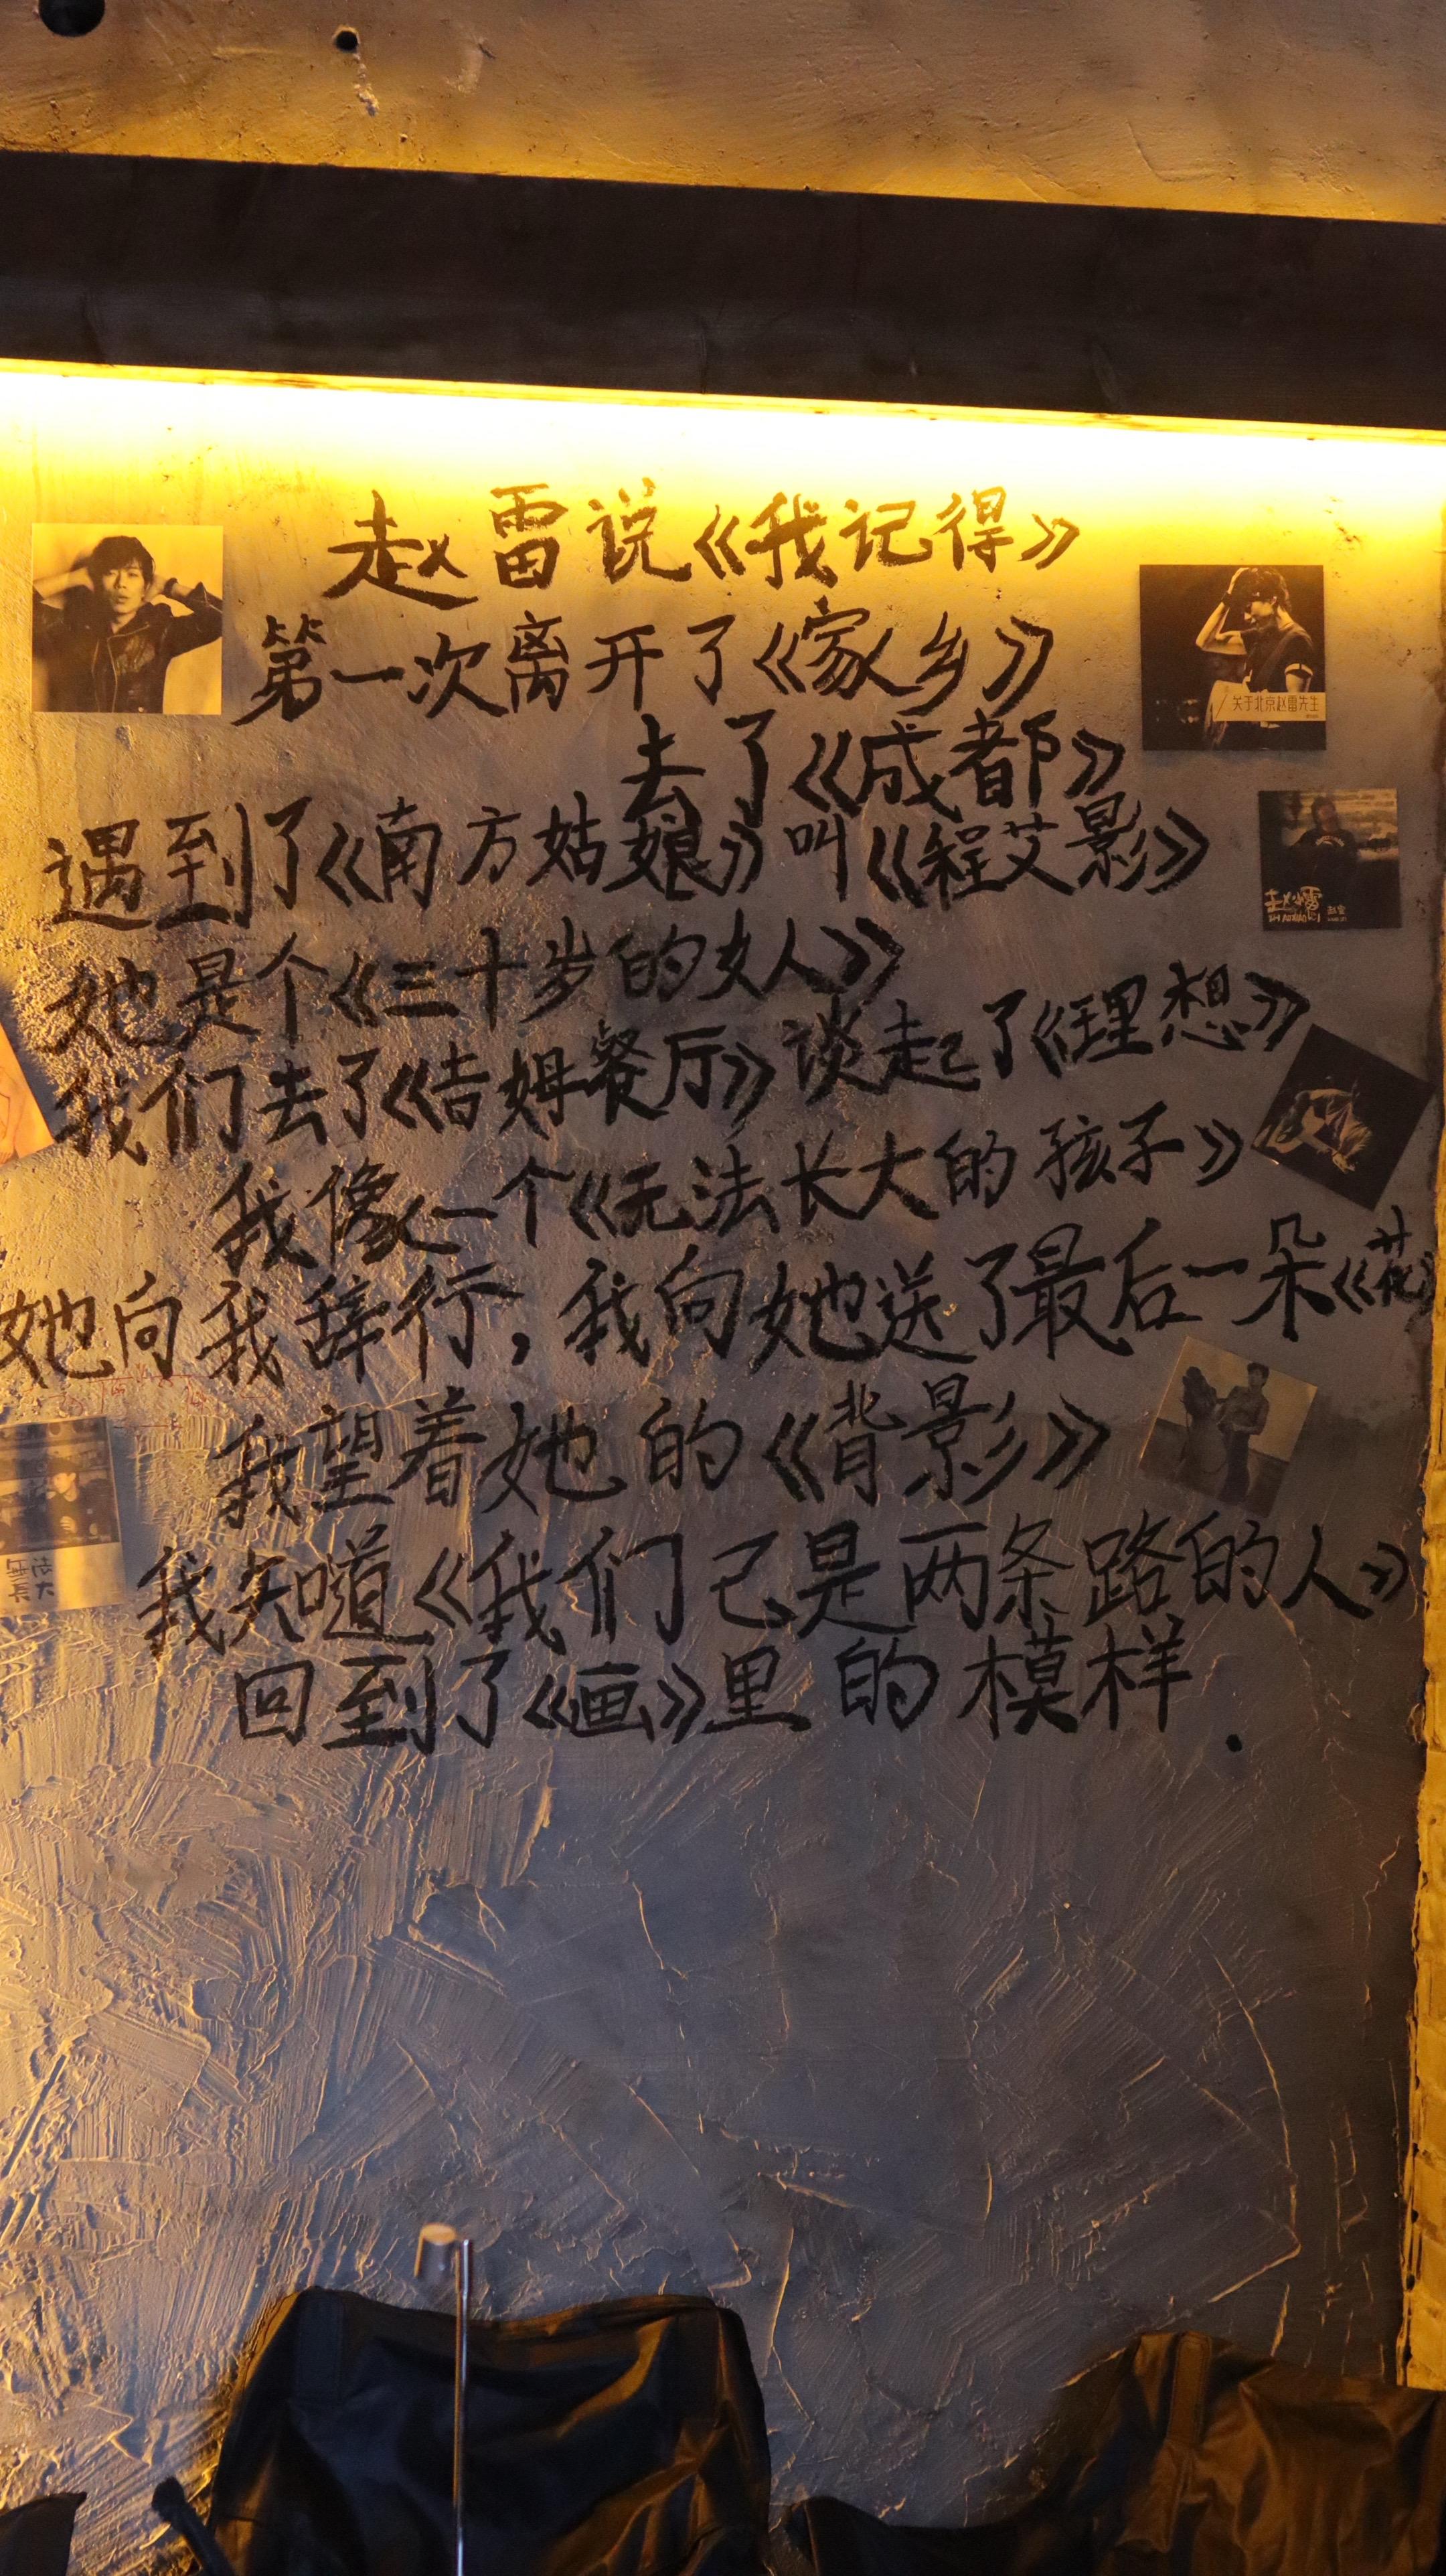 赵雷说《我记得》
第一次离开了《家乡》
去了《成都》
遇到了《南方姑娘》叫《程艾影》
她是个《三十岁的女人》
我们去了《吉姆餐厅》谈起了《理想》
我像一个《无法长大的孩子》
她向我辞行，我向她送了最后一朵《花》
我望着她的《背影》
我知道《我们已是两条路的人》
回到了《画》里的模样.
关于北京赵雷先生
赵小雷
無法
長大